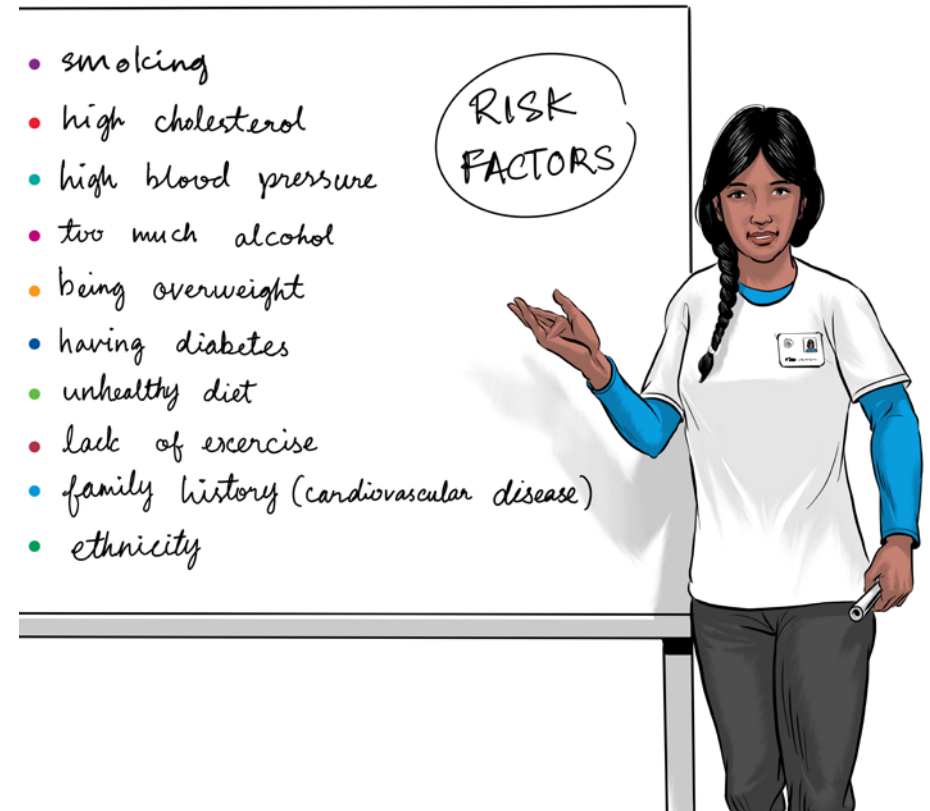 smoking
high cholesterol
high blood pressure
too much alcohol
being overweight
having diabetes
unhealthy diet
lack of excercise
family history (cardiovascular disease)
ethnicity
RISK
FACTORS